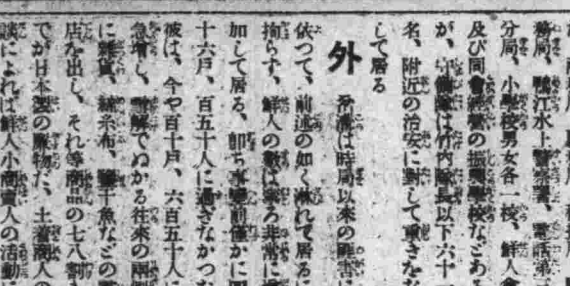 務局、鴨江水上警察署、電話第一
分局、小學校男女各一校、鮮人會
及び同會經營の振興學校などある
が、守備隊は竹内隊長以下六十一
名、附近の治安に對して重きをな
して居る
外 溝は時局以來の
依つて、前述の如く淋れて居るに
拘らず、鮮人の數は寧ろ非常に
加して居る、卽ち事變前僅かに
十六戶、百五十人に過ぎなかつ
彼は、今や百十戶、六百五十人に
急增し、雪解でぬかる往來の兩側
に雜貨、綿糸布、干魚などの
店を出し、それ等商品の七八割
でが日本製の品物だ、土着商人の
談によれば鮮人小商賣人の活動